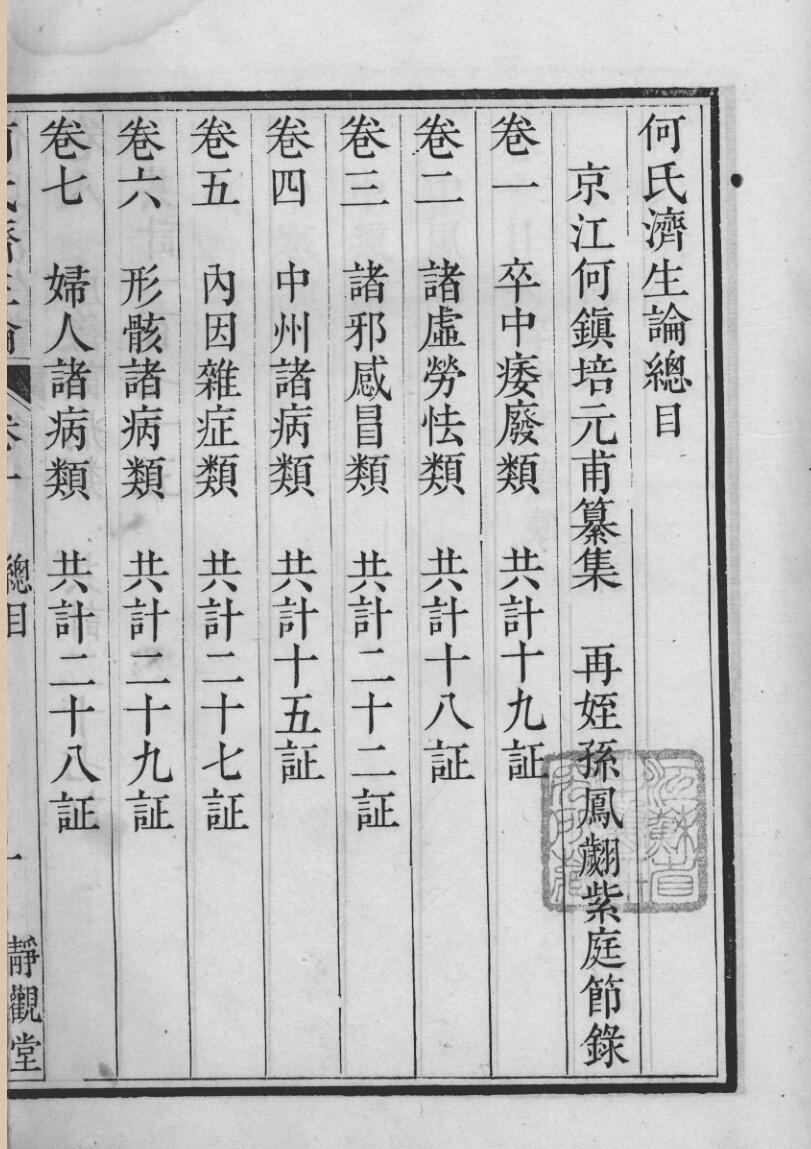 何氏濟生論總目
京江何鎭培元甫纂集 再姪孫鳳翽紫庭節錄
卷一 卒中痿廢類 共計十九証
卷二 諸虛勞怯類 共計十八証
卷三 諸邪感冒類 共計二十二証
卷四 中州諸病類 共計十五証
卷五 內因雜症類 共計二十七証
卷六 形骸諸病類 共計二十九証
卷七 婦人諸病類 共計二十八証
總目 一 靜觀堂